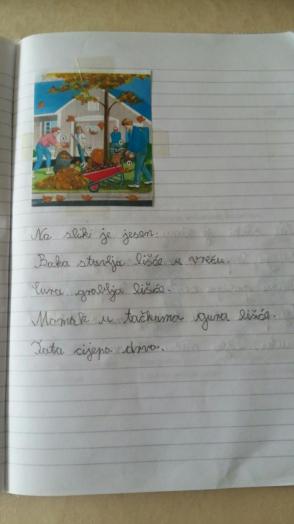 Na sliki je jesen.
Baka stavlja lišće u vreću.
Cura grablja lišće.
Momak u tačkama gura lišće.
Tata cijepa drva.